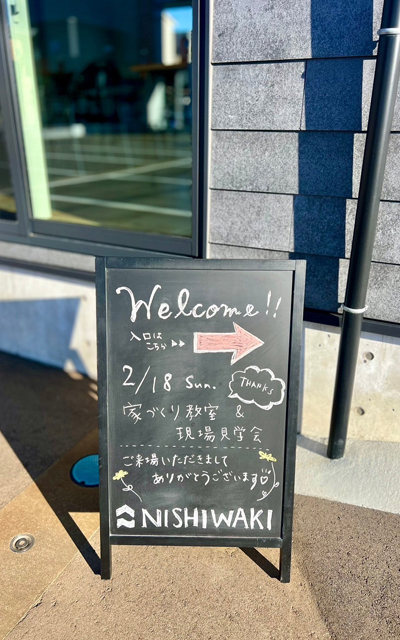 Welcome!!
入口は
こちら ▶▶
2/18 Sun.
THANKS
家づくり教室 &
現場見学会
ご来場いただきまして
ありがとうございます
NISHIWAKI